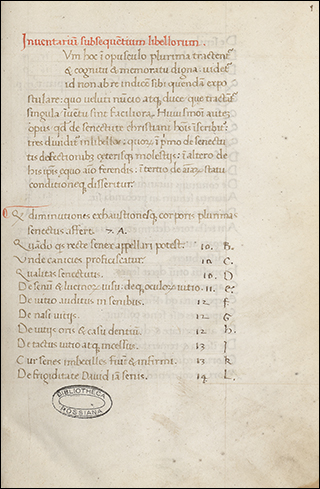 1
Inventariũ subsequentium libellorum.
Vm hoc ĩ opusculo plurima tractent̃
& cognitu & memoratu digna: uidet̃
id non ab re indicẽ sibi quendã expo
stulare: quo ueluti nuncio atq; duce que tractãt̃
singula ĩuẽtu sint faciliora. Huiusmõi autẽ
opus qđ de senectute christiani hoĩs ĩscribit̃
tres diuidit̃ ĩ libellos: quoꝝ ĩ pr̃mo de senectu
tis defectionibꝫ externisq; molestijs: ĩ altero de
his ip̃is equo aĩo ferendis: ĩ tertio de aĩaꝝ statu
conditioneq; disseritur.
diminutiones exhaustionesq; corporis plurimas
senectus affert. 7. A.
Quãdo qs recte senex appellari potest. 10. B.
Vnde canicies proficiscatur. 10. C.
Qualitas senectutis. 10. D
De senũ & lucernoꝝ uisu: deq; oculoꝝ uitio. 11. e.
De uitio auditus in senibus. 12. f
De nasi uitijs. 12. G
De uitijs oris & casu dentiũ. 12. h
De tactus uitio atq; incessus. 13 I
Cur senes imbecilles fiunt & infirmi. 13 K
De frigiditate Dauid iã senis. 14 L.
BIBLIOTHECA
ROSSIANA